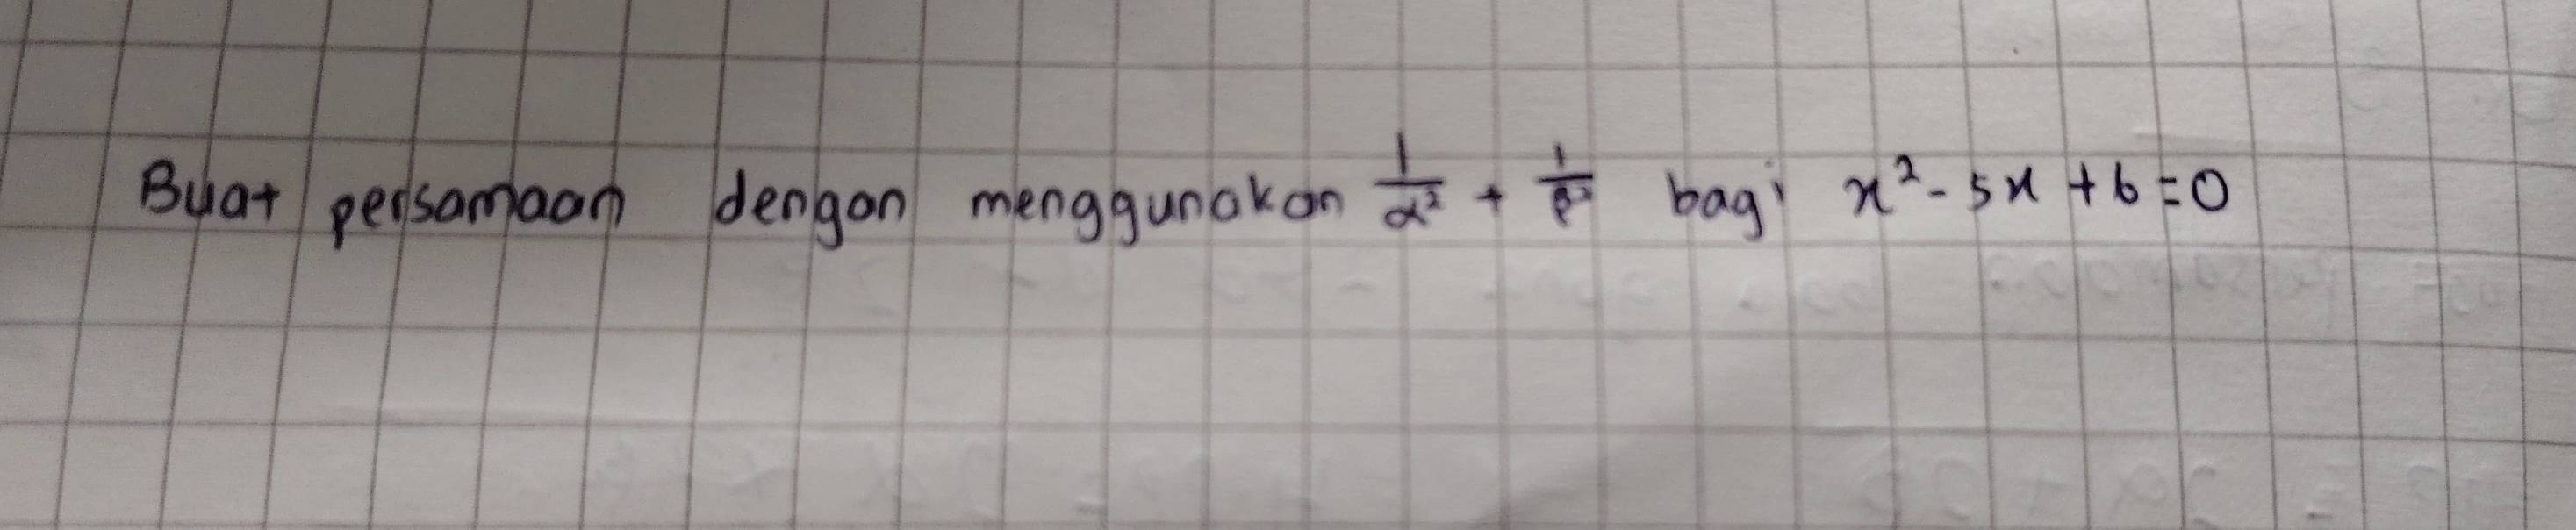 Buat persamaan dengan menggunakan 1/α² + 1/β² bagi x² - 5x + 6 = 0